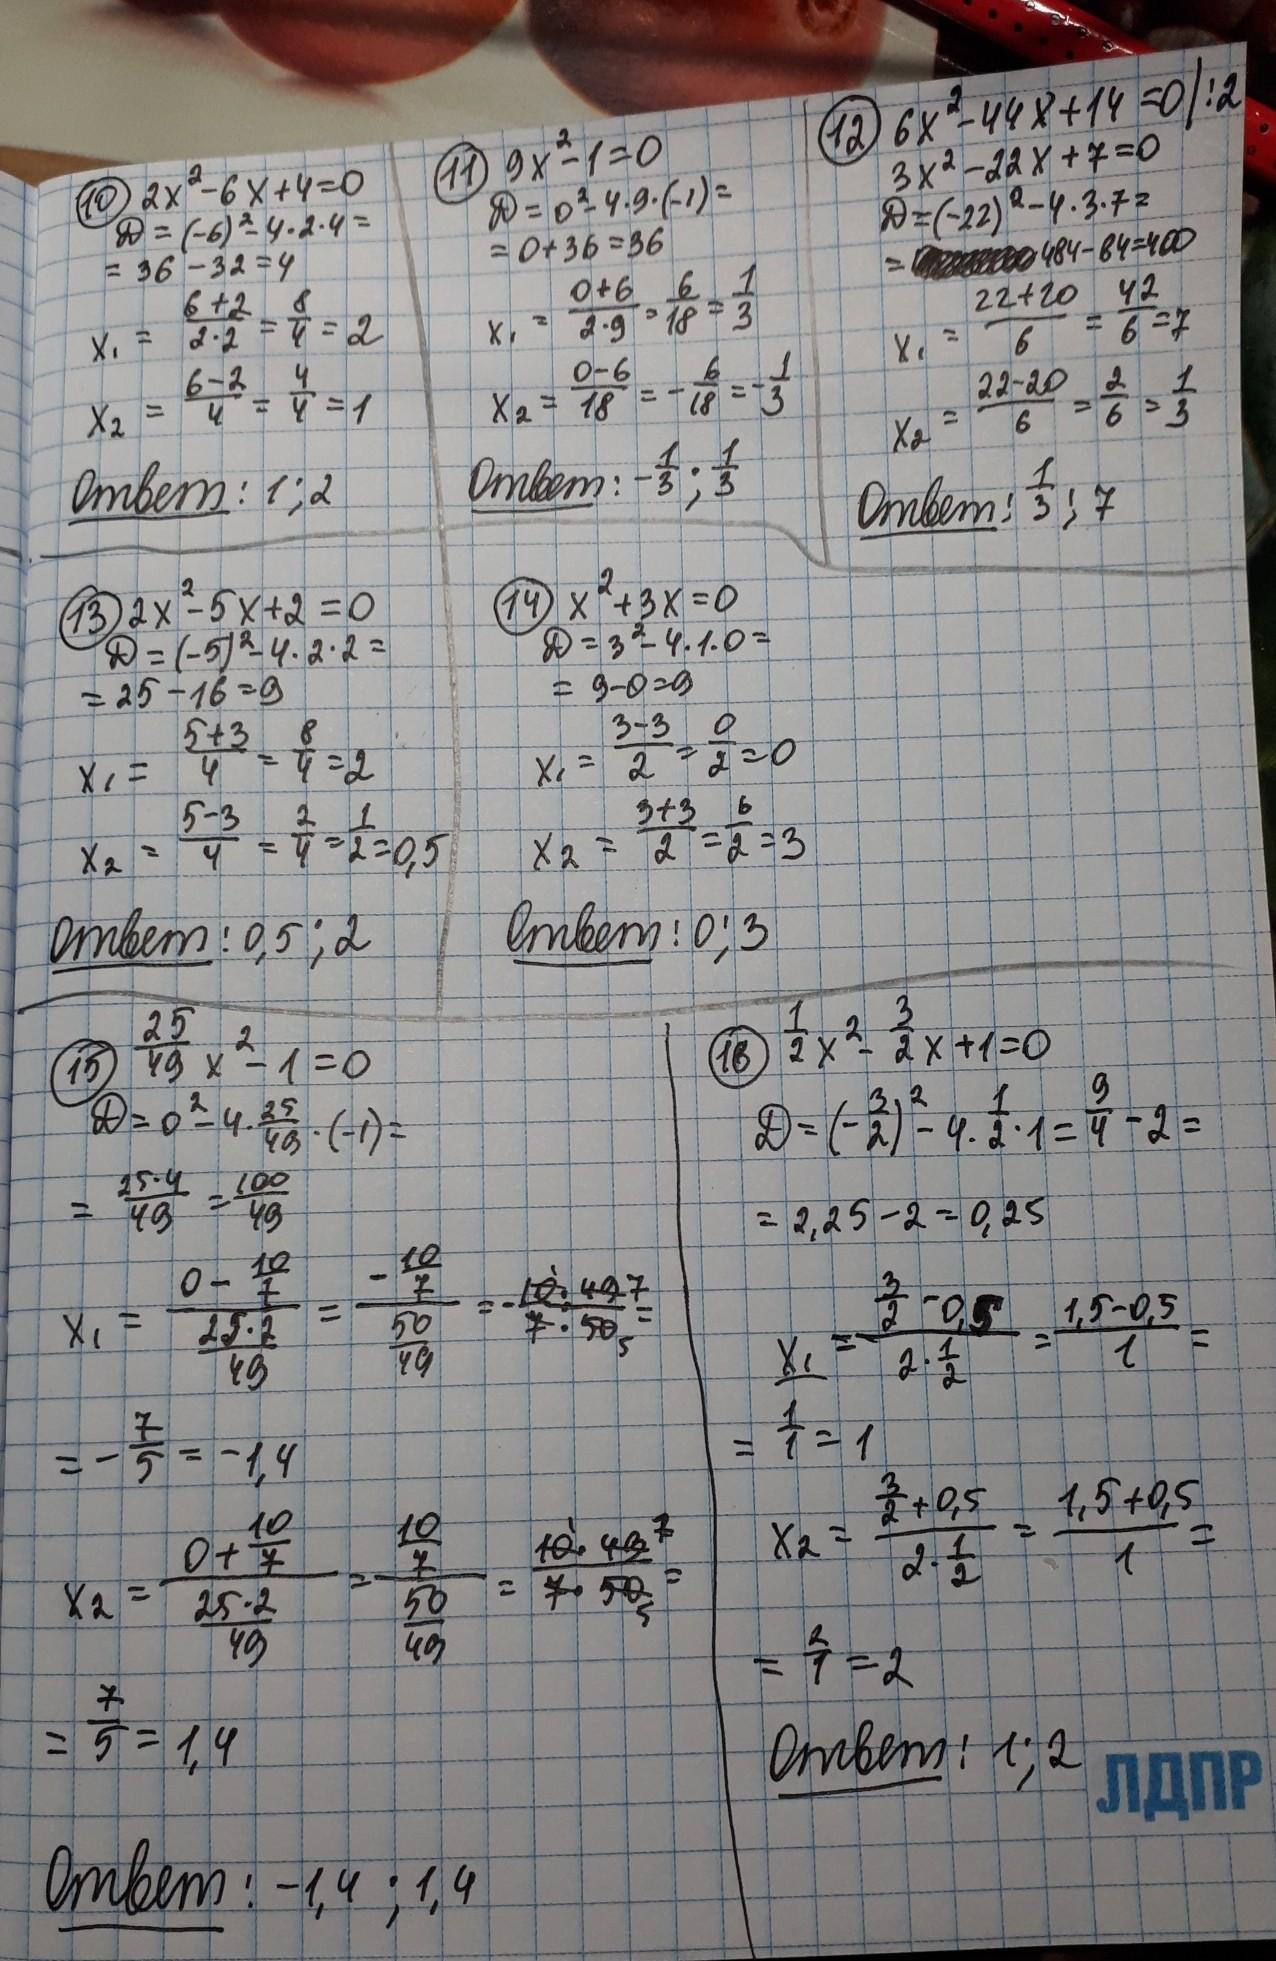 10 2x²-6x+4=0
D=(-6)²-4·2·4=
=36-32=4
x₁ = (6+2)/(2·2) = 8/4 = 2
x₂ = (6-2)/4 = 4/4 = 1
Ответ: 1; 2
11 9x²-1=0
D=0²-4·9·(-1)=
=0+36=36
x₁ = (0+6)/(2·9) = 6/18 = 1/3
x₂ = (0-6)/18 = -6/18 = -1/3
Ответ: -1/3; 1/3
12 6x²-44x+14=0|:2
3x²-22x+7=0
D=(-22)²-4·3·7=
= 484-84=400
x₁ = (22+20)/6 = 42/6 = 7
x₂ = (22-20)/6 = 2/6 = 1/3
Ответ: 1/3; 7
13 2x²-5x+2=0
D=(-5)²-4·2·2=
=25-16=9
x₁ = (5+3)/4 = 8/4 = 2
x₂ = (5-3)/4 = 2/4 = 1/2 = 0,5
Ответ: 0,5; 2
14 x²+3x=0
D=3²-4·1·0=
=9-0=9
x₁ = (3-3)/2 = 0/2 = 0
x₂ = (3+3)/2 = 6/2 = 3
Ответ: 0; 3
15 25/49 x²-1=0
D=0²-4·25/49·(-1)=
= (25·4)/49 = 100/49
x₁ = (0-10/7)/((25·2)/49) = (-10/7)/(50/49) = -(10·49)/(7·50) =
= -7/5 = -1,4
x₂ = (0+10/7)/((25·2)/49) = (10/7)/(50/49) = (10·49)/(7·50) =
= 7/5 = 1,4
Ответ: -1,4; 1,4
16 1/2 x²-3/2 x+1=0
D=(-3/2)²-4·1/2·1=9/4-2=
=2,25-2=0,25
x₁ = (3/2-0,5)/(2·1/2) = (1,5-0,5)/1 =
= 1/1 = 1
x₂ = (3/2+0,5)/(2·1/2) = (1,5+0,5)/1 =
= 2/1 = 2
Ответ: 1; 2
ЛДПР